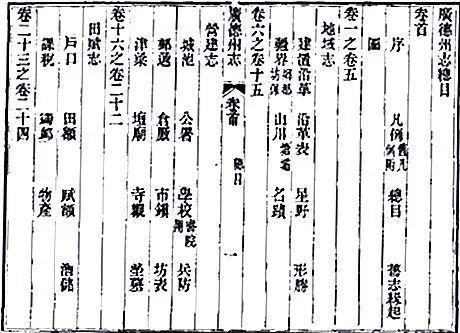 廣德州志總目
卷首
序 凡例 總目 舊志緣起
圖
卷一之卷五
地域志
建置沿革 沿革表 星野 形勝
疆界 山川 名蹟
卷六之卷十五
廣德州志 卷首 總目 一
營建志
城池 公署 學校書院 兵防
郵遞 倉廒 市鎮 坊表
津梁 壇廟 寺觀 塋墓
卷十六之卷二十二
田賦志
戶口 田額 賦額 漕儲
課稅 蠲卹 物產
卷二十三之卷二十四